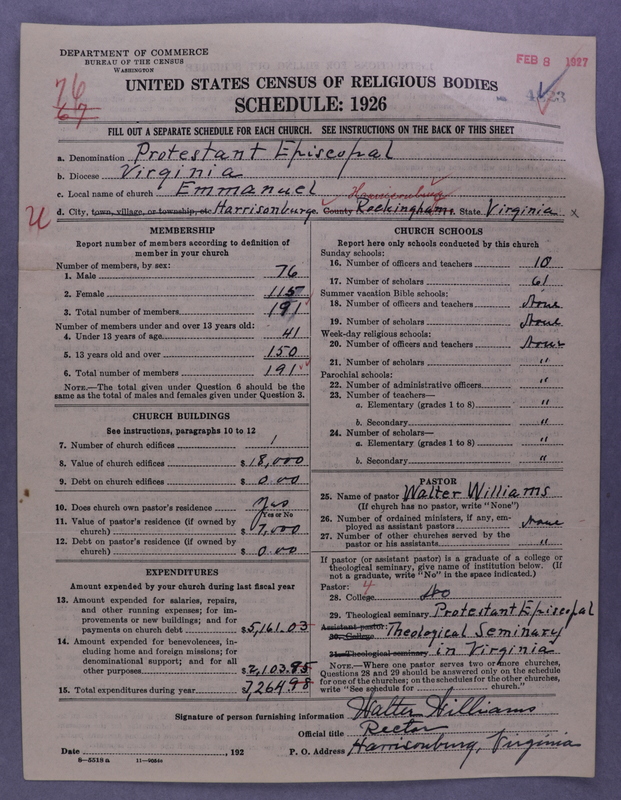 DEPARTMENT OF COMMERCE
BUREAU OF THE CENSUS
WASHINGTON
FEB 8 1927
76
67
UNITED STATES CENSUS OF RELIGIOUS BODIES
SCHEDULE: 1926
FILL OUT A SEPARATE SCHEDULE FOR EACH CHURCH. SEE INSTRUCTIONS ON THE BACK OF THIS SHEET
a. Denomination Protestant Episcopal
b. Diocese Virginia
c. Local name of church Emmanuel
Harrisonburg
d. City, town, village, or township, etc Harrisonburg. County Rockingham. State Virginia x
MEMBERSHIP
Report number of members according to definition of
member in your church
Number of members, by sex:
1. Male 76
2. Female 115
3. Total number of members 191
Number of members under and over 13 years old:
4. Under 13 years of age 41
5. 13 years old and over 150
6. Total number of members 191
NOTE.—The total given under Question 6 should be
same as the total of males and females given under Question 3.
CHURCH BUILDINGS
See instructions, paragraphs 10 to 12
7. Number of church edifices 1
8. Value of church edifices $ 18,000
9. Debt on church edifices $ 0.00
10. Does church own pastor's residence yes
(Yes or No)
11. Value of pastor's residence (if owned by
church) $ 7,000
12. Debt on pastor's residence (if owned by
church) $ 0.00
EXPENDITURES
Amount expended by your church during last fiscal year
13. Amount expended for salaries, repairs,
and other running expenses; for im-
provements or new buildings; and for
payments on church debt $5,161.03
14. Amount expended for benevolences, in-
cluding home and foreign missions; for
denominational support; and for all
other purposes $2,103.95
15. Total expenditures during year 7,264.98
CHURCH SCHOOLS
Report here only schools conducted by this church
Sunday schools:
16. Number of officers and teachers 10
17. Number of scholars 61
Summer vacation Bible schools:
18. Number of officers and teachers None
19. Number of scholars None
Week-day religious schools:
20. Number of officers and teachers None
21. Number of scholars "
Parochial schools:
22. Number of administrative officers "
23. Number of teachers—
a. Elementary (grades 1 to 8) "
b. Secondary "
24. Number of scholars—
a. Elementary (grades 1 to 8) "
b. Secondary "
PASTOR
25. Name of pastor Walter Williams
(If church has no pastor, write "None")
26. Number of ordained ministers, if any, em-
ployed as assistant pastors None
27. Number of other churches served by the
pastor or his assistants "
If pastor (or assistant pastor) is a graduate of a college or
theological seminary, give name of institution below. (If
not a graduate, write "No" in the space indicated.)
Pastor:
28. College No
29. Theological seminary Protestant Episcopal
Assistant pastor:
30. College Theological Seminary
31. Theological seminary in Virginia
NOTE.—Where one pastor serves two or more churches,
Questions 28 and 29 should be answered only on the schedule
for one of the churches; on the schedules for the other churches,
write "See schedule for ______ church."
Signature of person furnishing information Walter Williams
Official title Rector
Date ______, 192 P. O. Address Harrisonburg, Virginia
8—5513 a